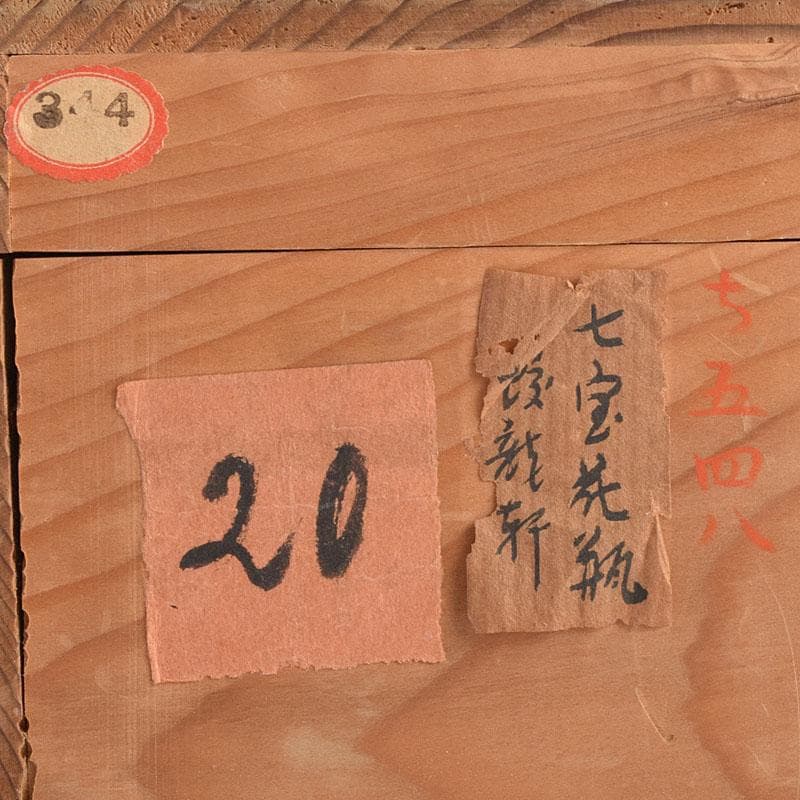 ち五四八
七宝花瓶
龍軒
20